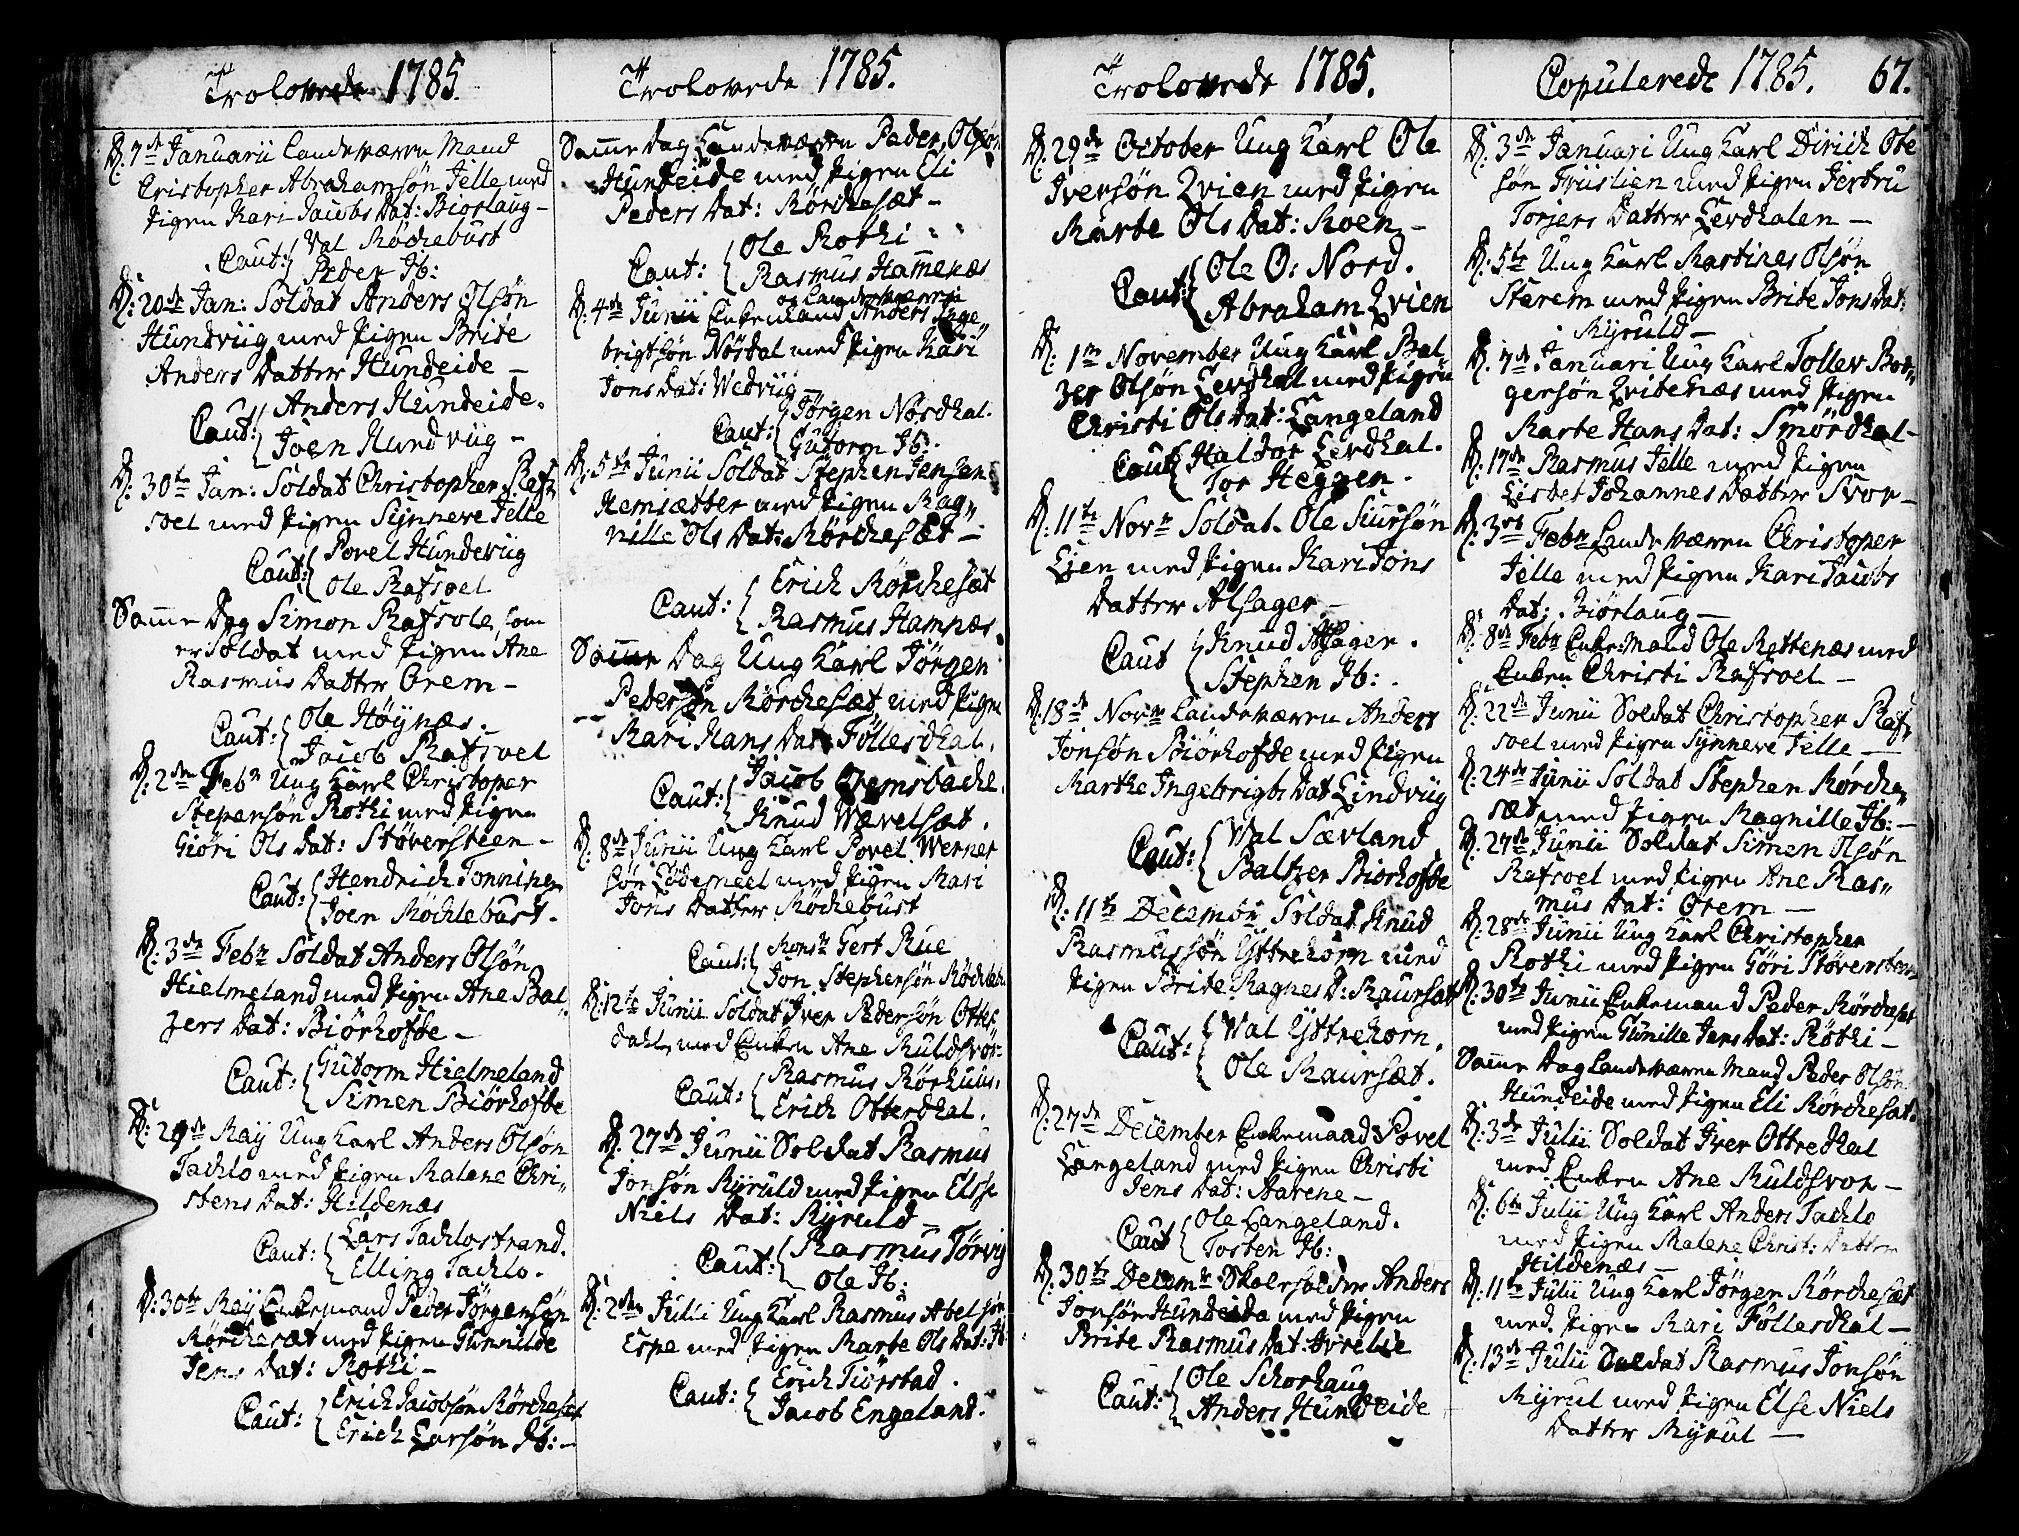 Trolovede 1785.
D: 7de Januarii Landeværn Mand
Cristopher Abrahamsøn Jelle med
Pigen Kari Jacobs Dat: Biørlaug -
Caut: Val Røchebust
Peder Ib:
D: 20de Jan: Soldat Anders Olsøn
Hundviig med Pigen Brite
Anders Datter Hundeide -
Caut: Anders Hundeide.
Joen Hundviig -
D: 30te Jan: Soldat Christopher Rafs
voel med Pigen Synneve Jelle
Caut: Povel Hundeviig
Ole Rafsvoel
Samme Dag Simon Rafsvole, som
er Soldat med Pigen Ane
Rasmus Datter Orem -
Caut: Ole Høynæs.
Jacob Rafsvoel
D: 2den Febr Ung Karl Christoper
Stepensøn Rothi med Pigen
Giøri Ols Dat: Støversteen -
Caut: Hendrich Tonning
Joen Røchlebust.
D: 3de Febr Soldat Anders Olsøn
Hielmeland med Pigen Ane Bal,,
zers Dat: Biørhofde -
Caut: Gutorm Hielmeland
Simen Biørhofde
D: 29de Maij Ung Karl Anders Olsøn
Tachlo med Pigen Malene Chri,,
stens Dat: Hildenæs
Caut: Lars Tachlostrand.
Elling Tachlo.
D: 30te Maij Enkemand Peder Jørgensøn
Rørchesæt med Pigen Gunnilde
Jens Dat: Rothi -
Caut: Erich Jacobsøn Rørchesæt
Erich Larsøn Ib: -
Trolovede 1785.
Samme Dag Landeværn Peder Olsøn
Hundeide med Pigen Eli
Peders Dat: Rørchesæt -
Caut: Ole Rothi
Rasmus Hamnæs
og Landeværn
D: 4de Junii Enkemand Anders Inge,,
brigtsøn Nordal med Pigen Kari
Jons Dat: Wedviig -
Caut: Jørgen Nordhal.
Gutorm Ib:
D: 5te Junii Soldat Stephen Jensen
Hemsætter med Pigen Mag,,
nille Ols Dat: Rørchesæt -
Caut: Erich Rørchesæt
Rasmus Hamnæs.
Samme Dag Ung Karl Jørgen
Pedersøn Rørchesæt med Pigen
Kari Hans Dat: Føllesdhal.
Caut: Jacob Oremsbache
Knud Wævelsæt.
D: 8de Junii Ung Karl Povel Werner
søn Lødemeel med Pigen Mari
Jons Datter Røchebust
Caut: Monsr Gert Rue
Jon Stephensøn Røchleb:
D: 12te Junii Soldat Iver Pedersøn Otter
dahl, med Enken Ane Muldsvor-
Caut: Rasmus Rørhuus.
Erich Otterdhal.
D: 27de Junii Soldat Rasmus
Jonsøn Myruld med Pigen Else
Niels Dat: Myruld -
Caut: Rasmus Torvig
Ole Ib:
D: 2den Julii Ung Karl Rasmus Abelsøn
Espe med Pigen Marte Ols Dat: Ib:
Caut: Erich Tiørstad.
Jacob Engeland.
Trolovede 1785.
D: 29de October Ung Karl Ole
Iversøn Qvien med Pigen
Marte Ols Dat: Moen -
Caut: Ole O: Nord.
Abraham Qvien
D: 1ste November Ung Karl Bal,,
zer Olsøn Levdhal med Pigen
Christi Ols Dat: Langeland
Caut: Haldor Levdhal.
Tor Heggen.
D: 11te Novr Soldat Ole Siursøn
Lien med Pigen Kari Jons
Datter Alsager -
Caut Knud Alsager.
Stephen Ib:
D: 18de Novr Landeværn Anders
Jonsøn Biørhofde med Pigen
Marthe Ingebrigts Dat Lindviig
Caut: Val Sævland
Baltzer Biørhofde
D: 11te Decembr Soldat Knud
Rasmussøn Yttrehorn med
Pigen Brite Magnes D: Maursæt
Caut: Val Yttrehorn.
Ole Maursæt.
D: 27de December Enkemand Povel
Langeland med Pigen Christi
Jens Dat: Aarene -
Caut Ole Langeland.
Tosten Ib:
D: 30te Decemr Skoelholder Anders
Jonsøn Hundeide med Pigen
Brite Rasmus Dat: Hvrelie
Caut: Ole Schorhaug
Anders Hundeide
Copulerede 1785. 67.
D: 3de Januari Ung Karl Dirich Ole
søn Fiislien med Pigen Jertru
Torjers Datter Levdhalen -
D: 5te Ung Karl Martines Olsøn
Starem med Pigen Brite Jons Dat:
Myruld -
D: 7de Januari Ung Karl Tollev Bor,,
gersøn Qvitenæs med Pigen
Marte Hans Dat: Smørdhal -
D: 17de Rasmus Jelle med Pigen
Lisbet Johannes Datter Svor -
D: 3die Febr Landeværn Christoper
Jelle med Pigen Kari Jacobs
Dat: Biørlaug -
D: 8de Febr Enke Mand Ole Rottenæs med
Enken Christi Rafsvoel -
D: 22de Junii Soldat Christopher Rafs
voel med Pigen Synneve Jelle -
D: 24de Junii Soldat Stephen Rørche,,
sæt med Pigen Magnille Ib: -
D: 27de Junii Soldat Simen Olsøn
Rafsvoel med Pigen Ane Ras,,
mus Dat: Orem -
D: 28de Junii Ung Karl Christopher
Rothi med Pigen Gøri Støversteen
D: 30te Junii Enkemand Peder Rørchesæt
med Pigen Gunille Jens Dat: Røthi -
Samme Dag Landeværn Mand Peder Olsøn
Hundeide med Pigen Eli Rørchesæt.
D: 3de Julii Soldat Iver Ottredhal
med Enken Ane Muldsvor -
D: 6te Julii Ung Karl Anders Tachlo
med Pigen Malene Christ: Datter
Hildenæs -
D: 11te Julii Ung Karl Jørgen Rørchesæt
med Pigen Kari Føllesdhal -
D: 13de Julii Soldat Rasmus Jonsøn
Myrul med Pigen Else Niels
Datter Myrul -